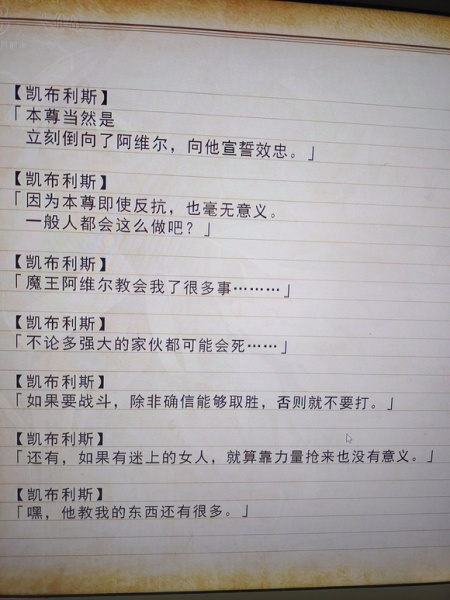 【凯布利斯】
「本尊当然是
立刻倒向了阿维尔，向他宣誓效忠。」
【凯布利斯】
「因为本尊即使反抗，也毫无意义。
一般人都会这么做吧？」
【凯布利斯】
「魔王阿维尔教会我了很多事………」
【凯布利斯】
「不论多强大的家伙都可能会死……」
【凯布利斯】
「如果要战斗，除非确信能够取胜，否则就不要打。」
【凯布利斯】
「还有，如果有迷上的女人，就算靠力量抢来也没有意义。」
【凯布利斯】
「嘿，他教我的东西还有很多。」